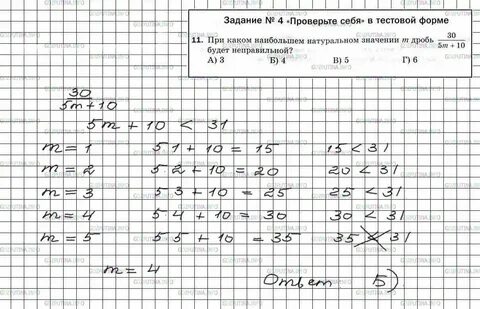 Задание № 4 «Проверьте себя» в тестовой форме
11. При каком наибольшем натуральном значении m дробь 30/(5m + 10)
будет неправильной?
А) 3 Б) 4 В) 5 Г) 6
30/(5m + 10)
5m + 10 < 31
m = 1 5·1 + 10 = 15 15 < 31
m = 2 5·2 + 10 = 20 20 < 31
m = 3 5·3 + 10 = 25 25 < 31
m = 4 5·4 + 10 = 30 30 < 31
m = 5 5·5 + 10 = 35 35 < 31
m = 4
Ответ Б)